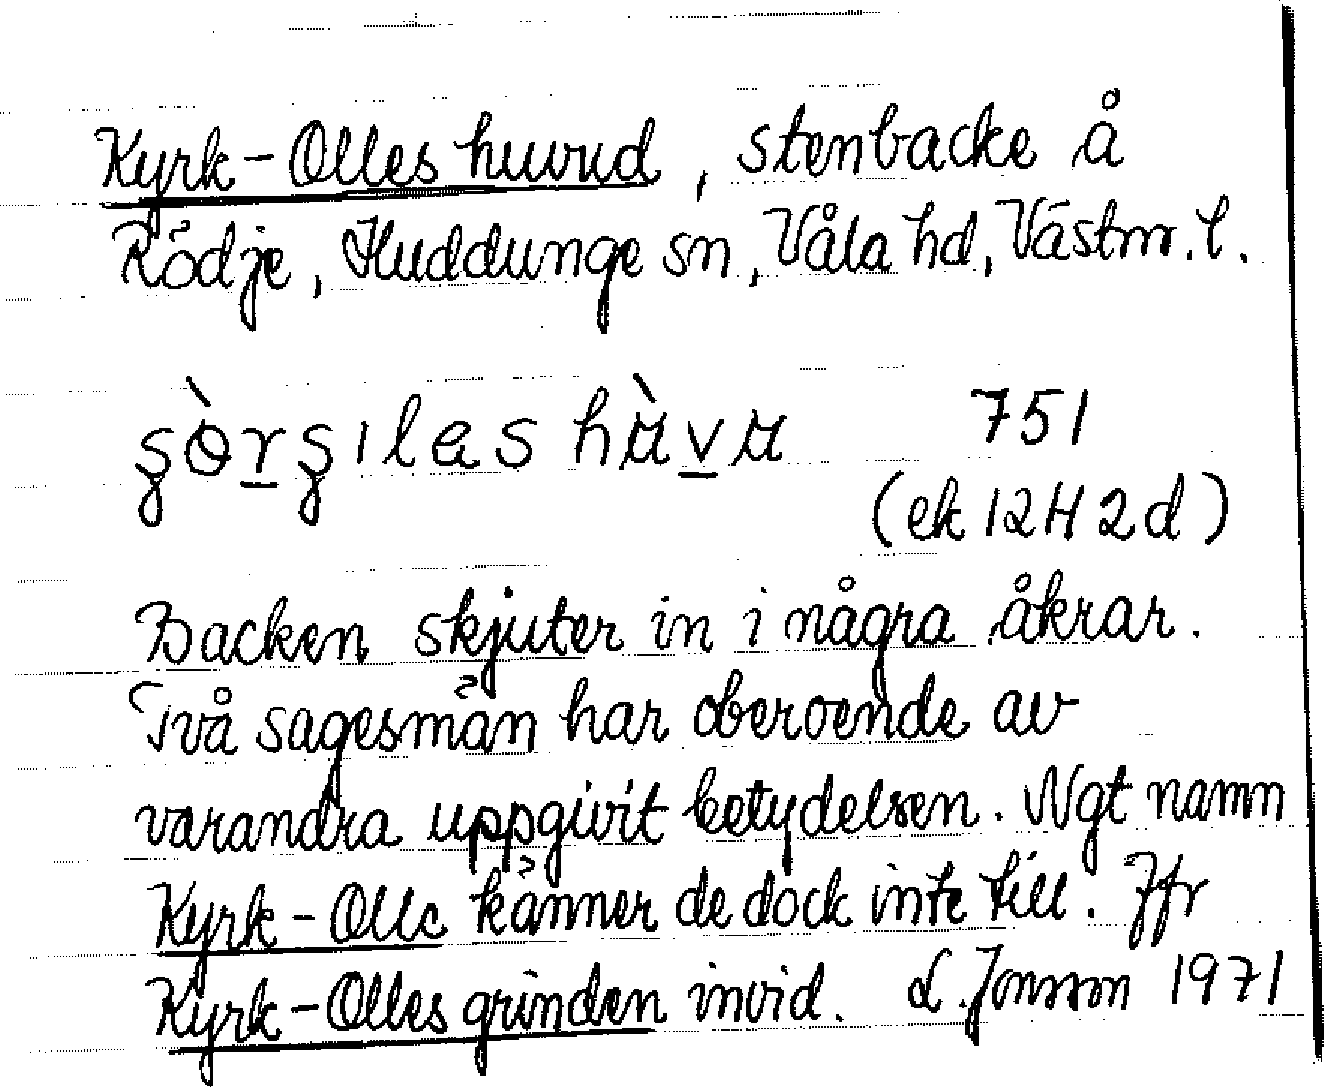 Kyrk-Olles huvud, stenbacke å
Rödje, Huddunge sn, Våla hd, Västm. l.
751
(ek 12H2d)
Backen skjuter in i några åkrar.
Två sagesmän har oberoende av
varandra uppgivit betydelsen. Ngt namn
Kyrk-Olle känner de dock inte till. Jfr
Kyrk-Olles grinden invid. L. Jonsson 1971